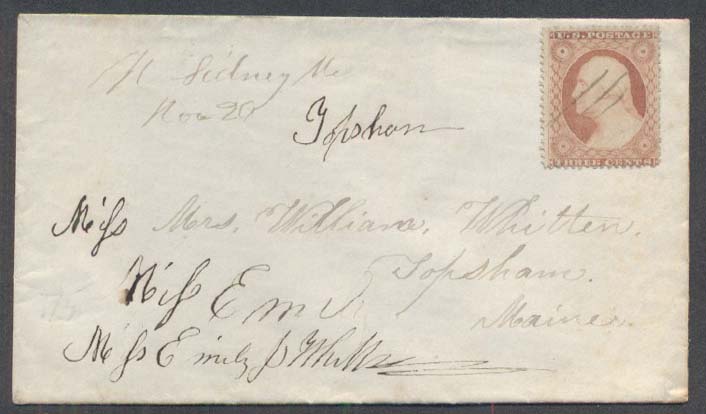 U.S. POSTAGE
Sidney Me
Nov 20
Topsham
THREE CENTS
Miss Mrs. William Whitten.
Topsham.
Miss Em
Maine.
Miss Emily